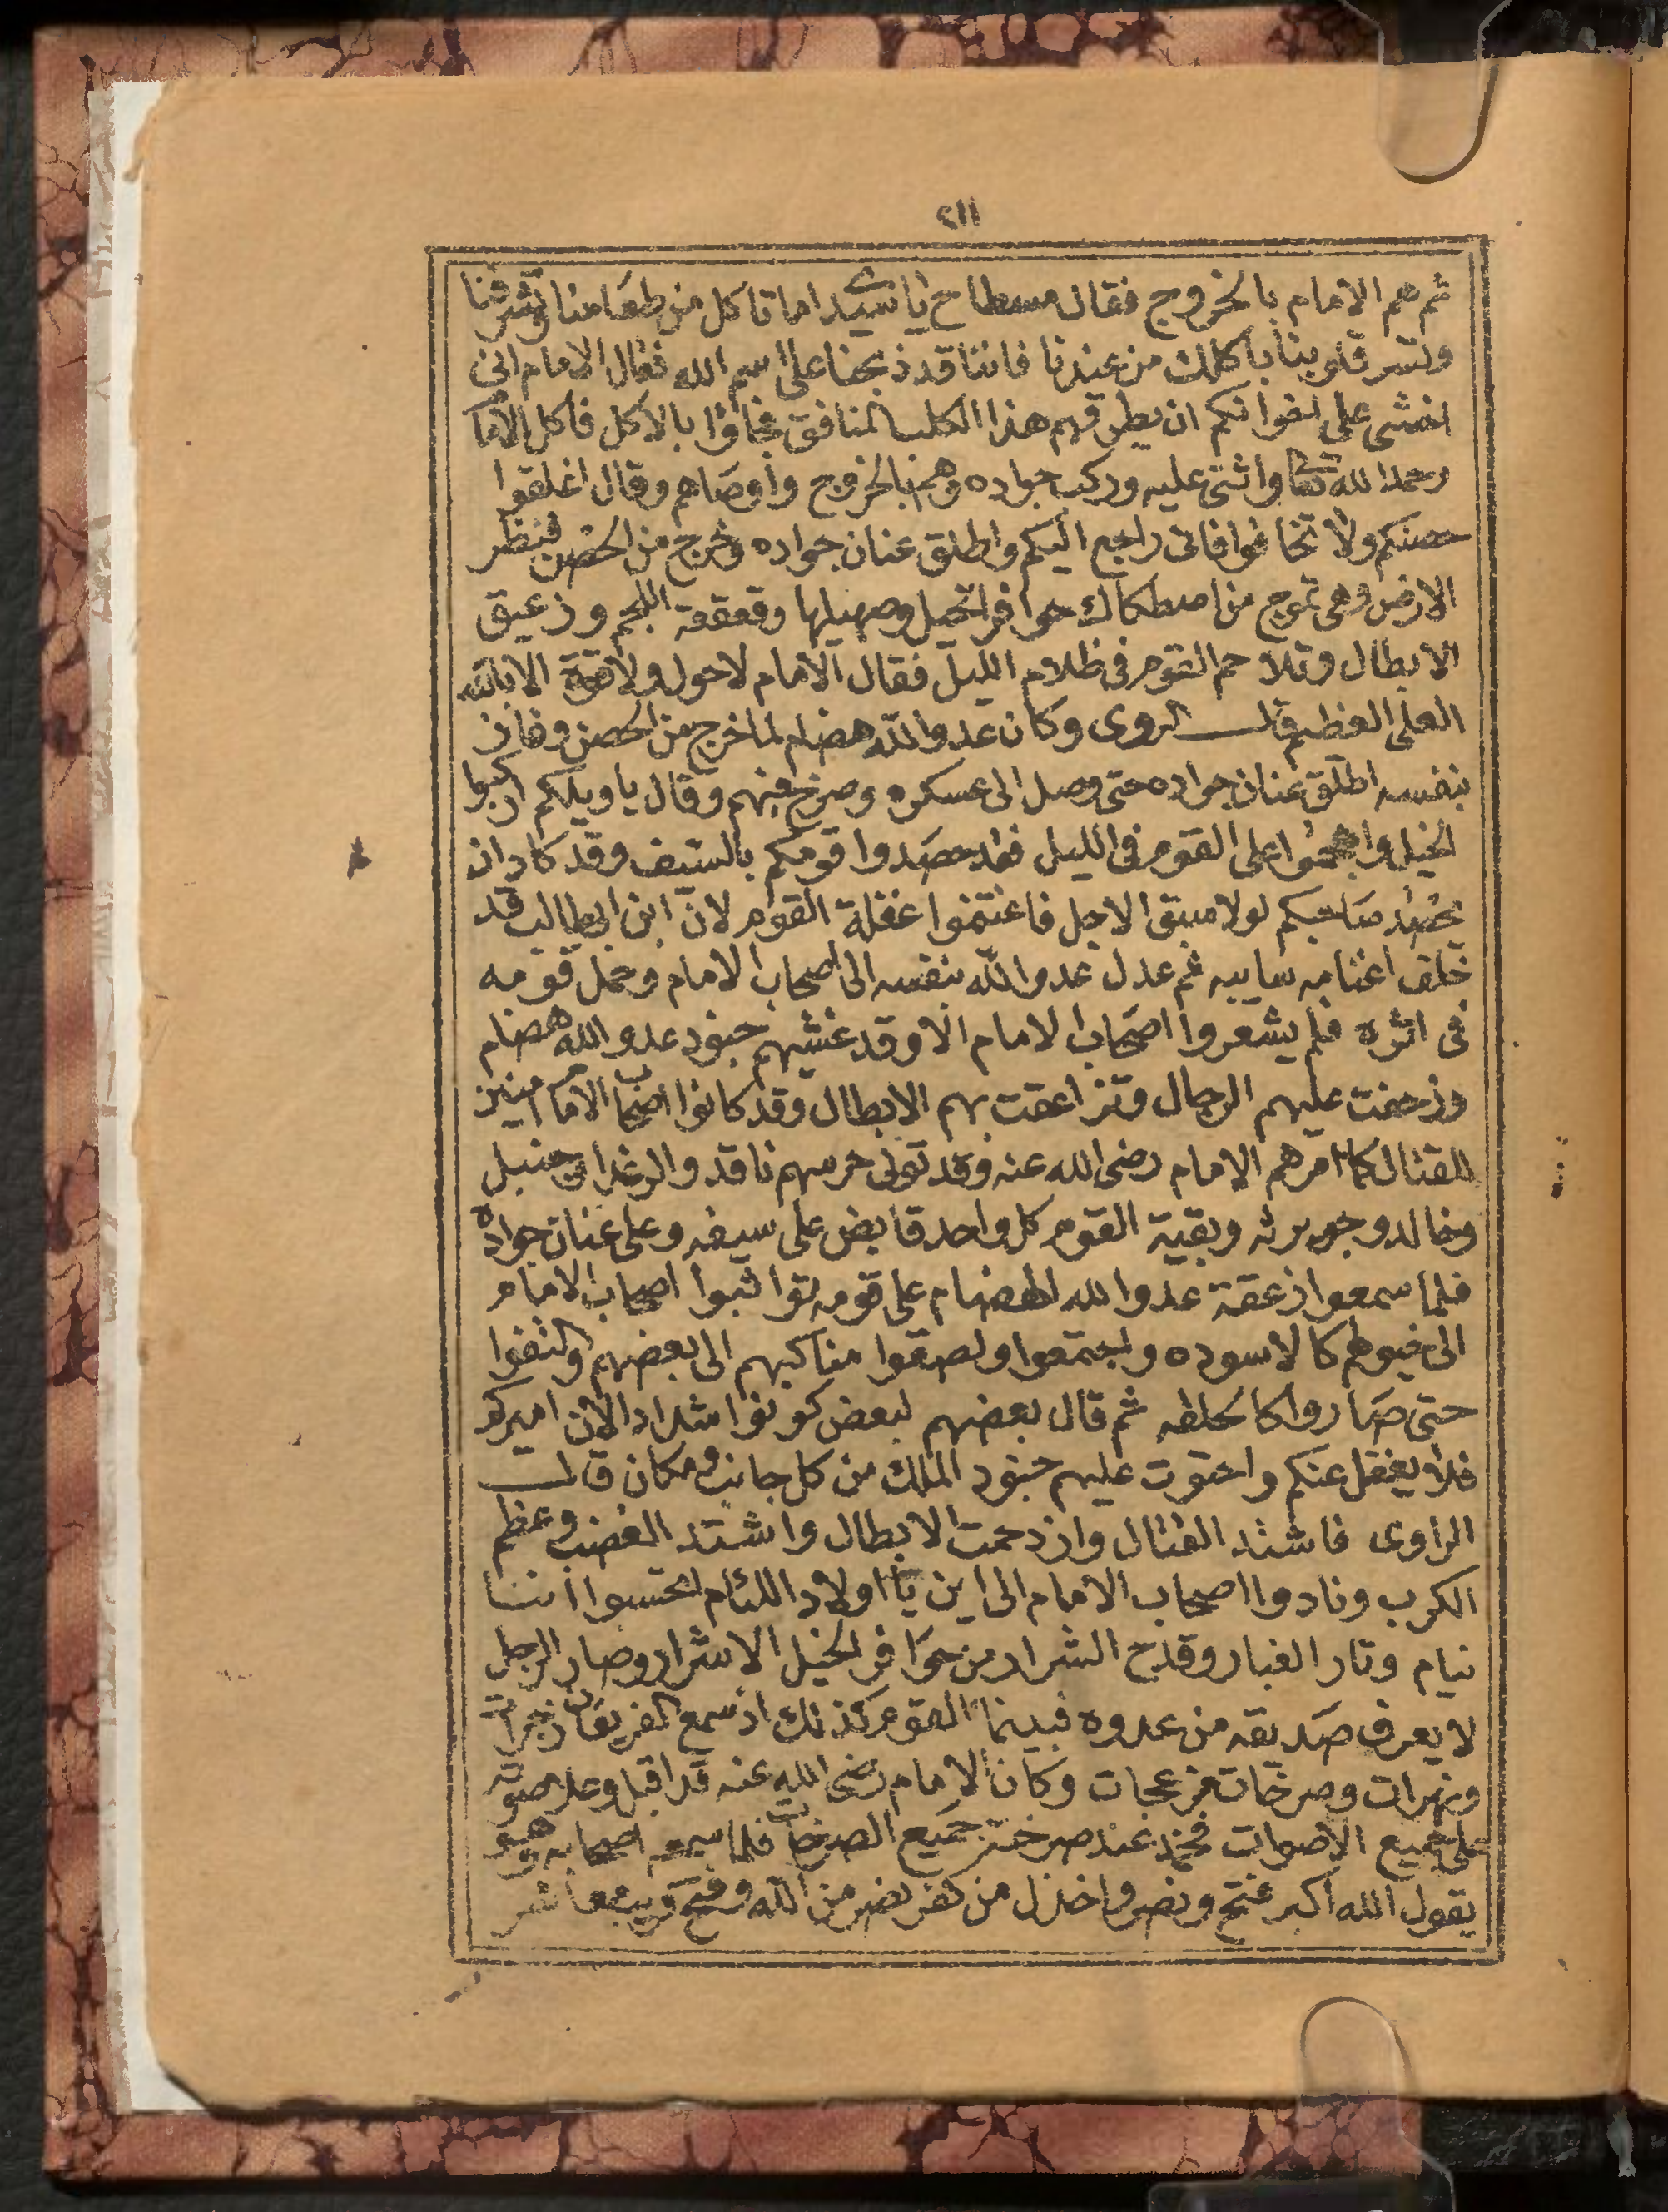 ٢١١
ثم هم الامام بالخروج فقال مسطاح يا سيدى اما تاكل من طعامنا وتشرفنا
وتسر قلوبنا باكلك من عندنا فاننا قد ذبحنا على اسم الله فقال الامام انى
اخشى على اخوانكم ان يطرقهم هذا الكلب المنافق فجاؤا بالاكل فاكل الاما
وحمد الله تعا واثنى عليه وركب جواده وهم بالخروج واوصاهم وقال اغلقوا
حصنكم ولا تخافوا فانى راجع اليكم واطلق عنان جواده وخرج من الحصن فنظر
الارض وهى تموج من اصطكاك حوافر الخيل وصهيلها وقعقعة اللجم وزعيق
الابطال وتلاحم القوم فى ظلام الليل فقال الامام لاحول ولاقوة الا بالله
العلى العظيم قال الروى وكان عدو الله هضام لما خرج من الحصن وفاز
بنفسه اطلق عنان جواده حتى وصل الى عسكره وصرخ فيهم وقال يا ويلكم اركبوا
الخيل واهجموا على القوم فى الليل فقد حصدوا قومكم بالسيف وقد كاد ان
يحصد صاحبكم لولا سبق الاجل فاغتنموا غفلة القوم لان ابن ابى طالب قد
خلف اعنابه سايبه ثم عدل عدو الله بنفسه الى اصحاب الامام وحمل قومه
فى اثره فلم يشعروا اصحاب الامام الا وقد غشيهم جنود عدو الله هضام
وزحفت عليهم الرجال وتزاعقت بهم الابطال وقد كانوا اصحاب الاما امنين
للقتال كما امرهم الامام رضى الله عنه وقد تولى حرسهم ناقد والرغدا بن جنبل
وخالد وجويرثه وبقية القوم كل واحد قابض على سيفه وعلى عنان جواده
فلما سمعوا زعقة عدو الله الهضام على قومه تواثبوا اصحاب الامام
الى خيولهم كالاسوده واجتمعوا ولصقوا مناكبهم الى بعضهم والتفوا
حتى صاروا كالحلقه ثم قال بعضهم لبعض كونوا شداد الان اميركم
فلا يغفل عنكم واحتوت عليهم جنود الملك من كل جانب ومكان قال
الراوى فاشتد القتال وازدحمت الابطال واشتد الغضب وعظم
الكرب ونادوا اصحاب الامام الى اين يا اولاد اللئام اتحسبوا اننا
نيام وثار الغبار وقدح الشرار من حوافر الخيل الاشرار وصار الرجل
لا يعرف صديقه من عدوه فبينما القوم كذلك اذ سمع الفريقان زجرات
ونهرات وصرخات مزعجات وكان الامام رضى الله عنه قد اقبل وعلا صوته
على جميع الاصوات فخمد عند صرخته جميع الصرخات فلما سمعه اصحابه وهو
يقول الله اكبر فتح ونصر واخذل من كفر نصر من الله وفتح قريب